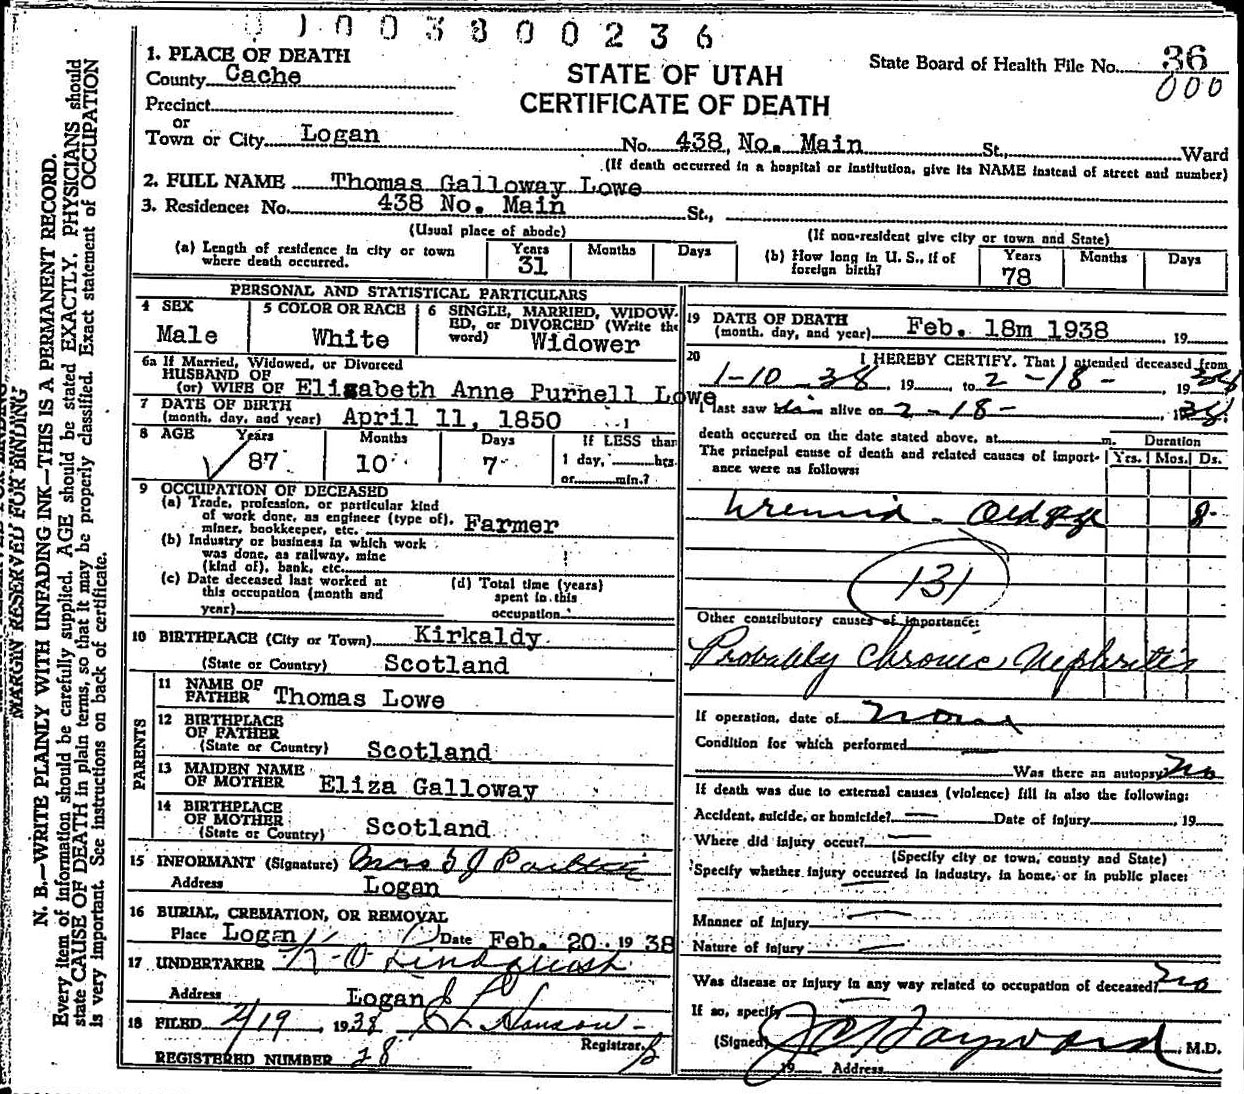 0 1 0 0 3 8 0 0 2 3 6
1. PLACE OF DEATH
County Cache
STATE OF UTAH
CERTIFICATE OF DEATH
State Board of Health File No. 36
000
Precinct
or
Town or City Logan No. 438 No. Main St., Ward
(If death occurred in a hospital or institution, give its NAME instead of street and number)
2. FULL NAME Thomas Galloway Lowe
3. Residence: No. 438 No. Main St.,
(Usual place of abode) (If non-resident give city or town and State)
(a) Length of residence in city or town where death occurred. Years 31 Months Days
(b) How long in U. S., if of foreign birth? Years 78 Months Days
PERSONAL AND STATISTICAL PARTICULARS
4 SEX Male
5 COLOR OR RACE White
6 SINGLE, MARRIED, WIDOWED, or DIVORCED (Write the word) Widower
6a If Married, Widowed, or Divorced
HUSBAND OF
(or) WIFE OF Elizabeth Anne Purnell Lowe
7 DATE OF BIRTH
(month, day, and year) April 11, 1850
8 AGE Years 87 Months 10 Days 7 If LESS than
1 day, hrs.
or min.?
9 OCCUPATION OF DECEASED
(a) Trade, profession, or particular kind
of work done, as engineer (type of),
miner, bookkeeper, etc. Farmer
(b) Industry or business in which work
was done, as railway, mine
(kind of), bank, etc.
(c) Date deceased last worked at
this occupation (month and
year)
(d) Total time (years)
spent in this
occupation
10 BIRTHPLACE (City or Town) Kirkaldy
(State or Country) Scotland
PARENTS
11 NAME OF
FATHER Thomas Lowe
12 BIRTHPLACE
OF FATHER
(State or Country) Scotland
13 MAIDEN NAME
OF MOTHER Eliza Galloway
14 BIRTHPLACE
OF MOTHER
(State or Country) Scotland
15 INFORMANT (Signature) Mrs G J
Address Logan
16 BURIAL, CREMATION, OR REMOVAL
Place Logan Date Feb. 20 1938
17 UNDERTAKER Lindquist
Address Logan
18 FILED 2/19, 1938 Hanson
Registrar.
REGISTERED NUMBER 28
19 DATE OF DEATH
(month, day, and year) Feb. 18m 1938 19
20 I HEREBY CERTIFY, That I attended deceased from
1-10-38, 19 to 2-18-, 1938
I last saw him alive on 2-18- 1938
death occurred on the date stated above, at m. Duration
The principal cause of death and related causes of importance were as follows: Yrs. Mos. Ds.
Uremia - Old age 8
131
Other contributory causes of importance:
Probably Chronic Nephritis
If operation, date of None
Condition for which performed
Was there an autopsy No
If death was due to external causes (violence) fill in also the following:
Accident, suicide, or homicide? Date of injury 19
Where did injury occur?
(Specify city or town, county and State)
Specify whether injury occurred in industry, in home, or in public place:
Manner of Injury
Nature of Injury
Was disease or injury in any way related to occupation of deceased? No
If so, specify
(Signed) Hayward, M.D.
19 Address
MARGIN RESERVED FOR BINDING
N. B.—WRITE PLAINLY WITH UNFADING INK—THIS IS A PERMANENT RECORD.
Every item of information should be carefully supplied. AGE should be stated EXACTLY. PHYSICIANS should
state CAUSE OF DEATH in plain terms, so that it may be properly classified. Exact statement of OCCUPATION
is very important. See instructions on back of certificate.